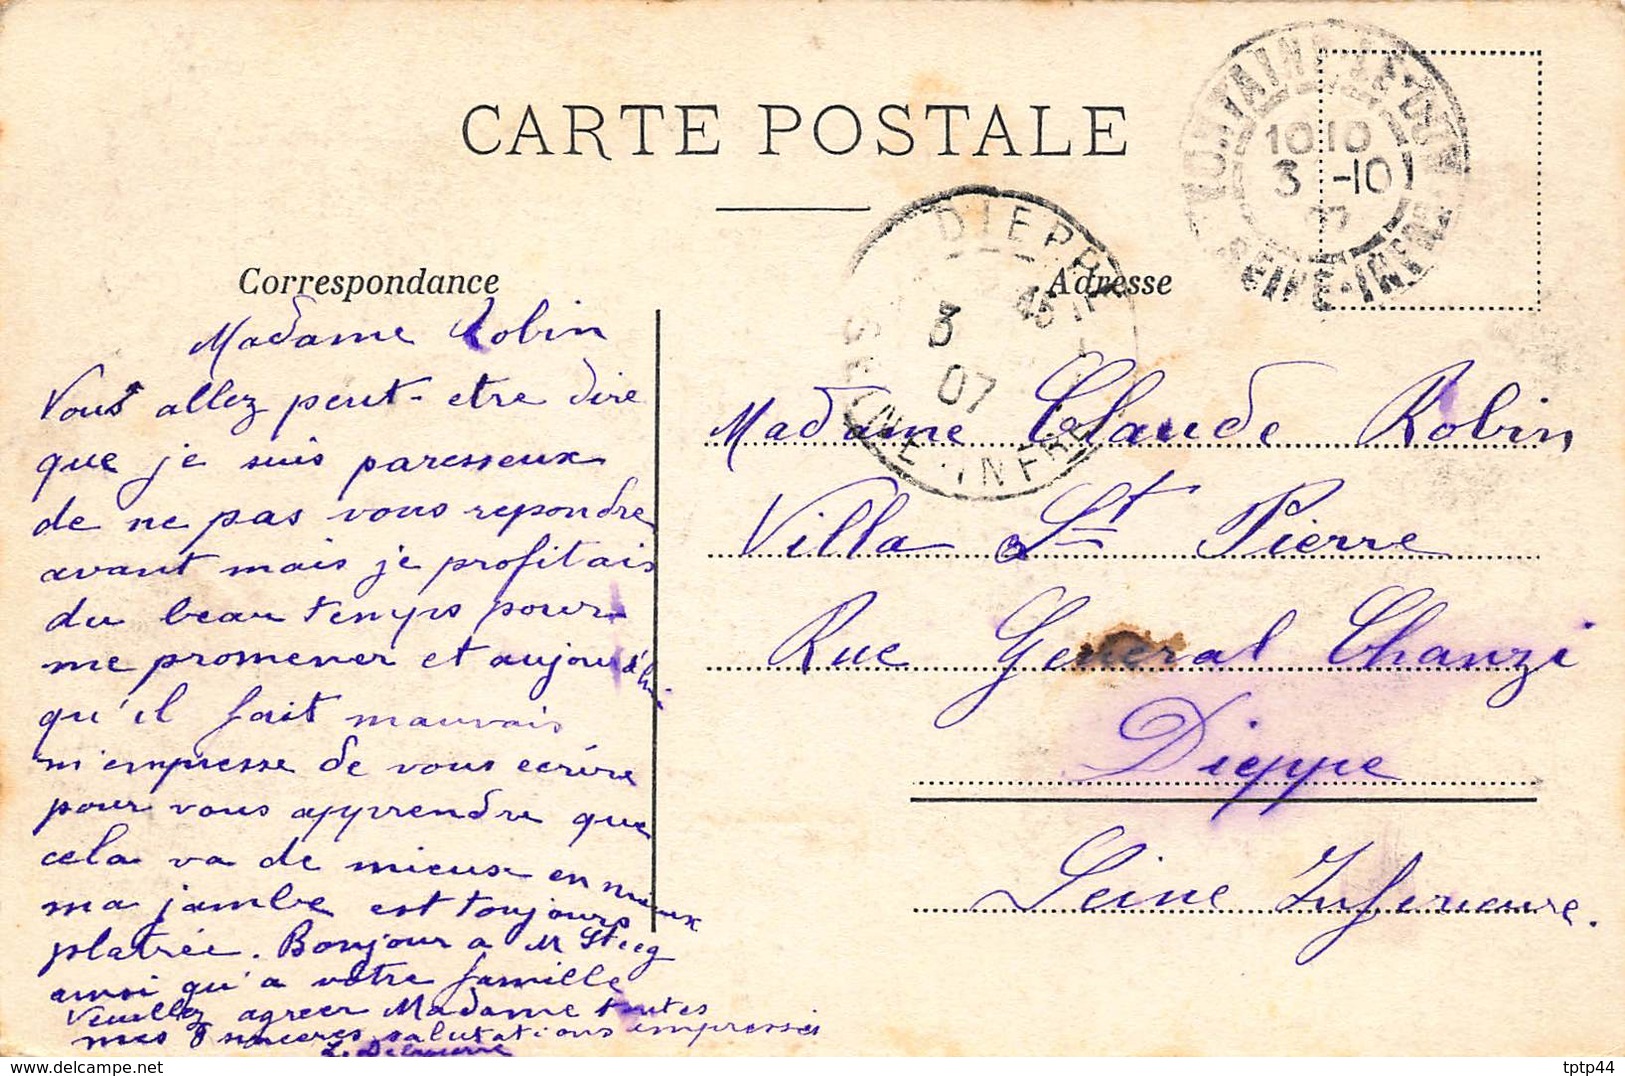 CARTE POSTALE
Correspondance
Madame Robin
Vous allez peut-etre dire
que je suis paresseux
de ne pas vous repondre
avant mais je profitais
du beau temps pour
me promener et aujourd'hui
qu'il fait mauvais
m'empresse de vous ecrire
pour vous apprendre que
cela va de mieux en mieux
ma jambe est toujours
platrée. Bonjour a M
ainsi qu'a votre famille
Veuillez agreer Madame toutes
mes sinceres salutations empressés
Adresse
Madame Claude Robin
Villa St Pierre
Rue General Chanzi
Dieppe
Seine Inferieure.
DIEPPE
3
07
SEINE-INFRE
1010
3 -10
SEINE-INFRE
tptp44